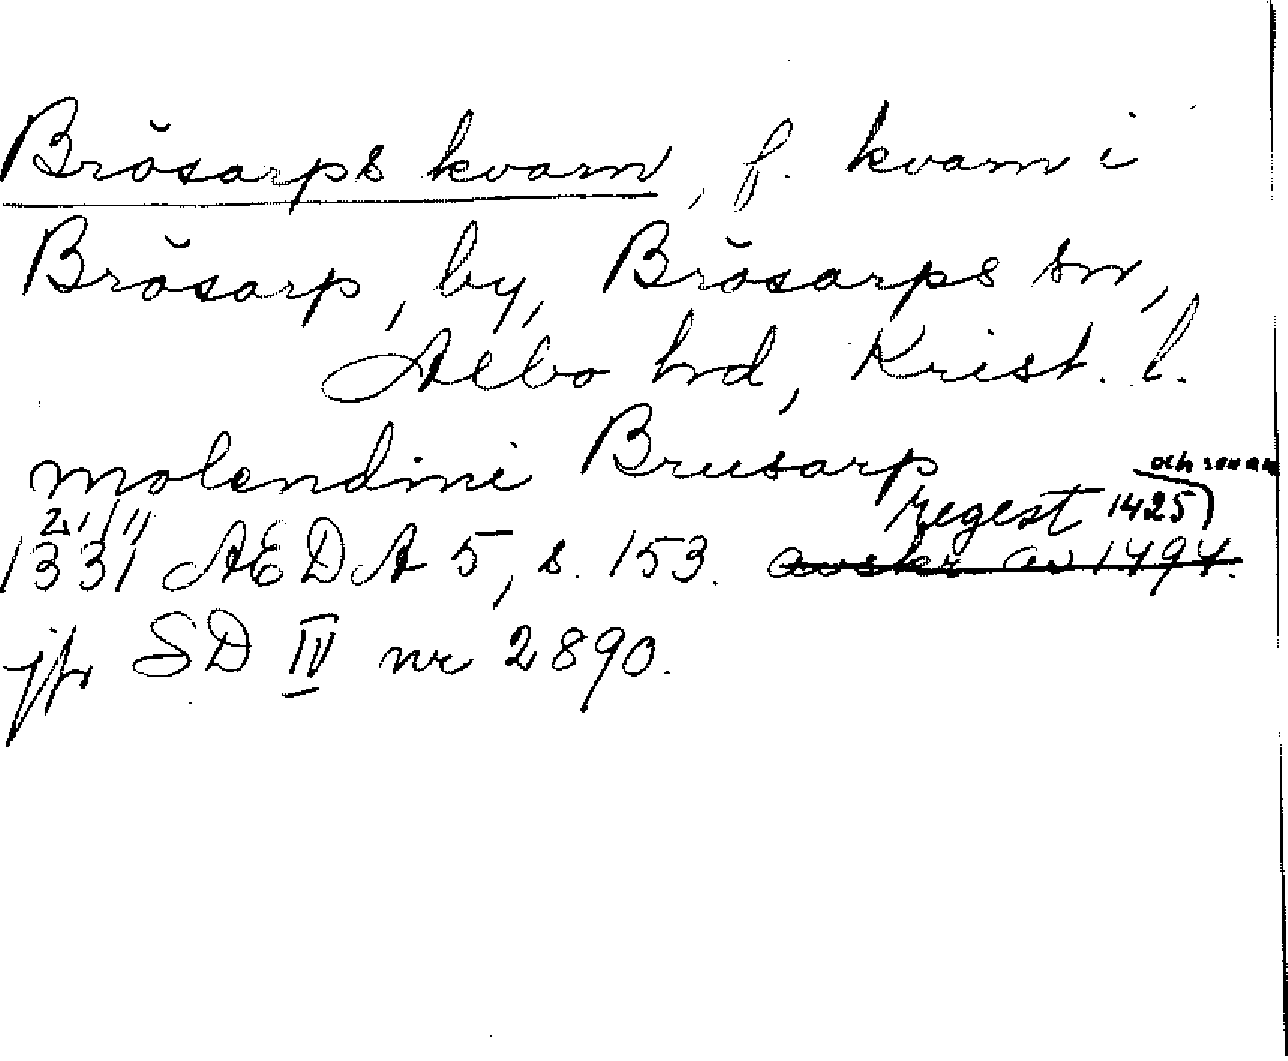 Brösarps kvarn, f. kvarn i
Brösarp, by, Brösarps sn,
Albo hd, Krist. l.
molendini Brusarp
och senare
regest 1425
21/11
1331 AEDA 5, s. 153. avskr av 1494.
jfr SD IV nr 2890.